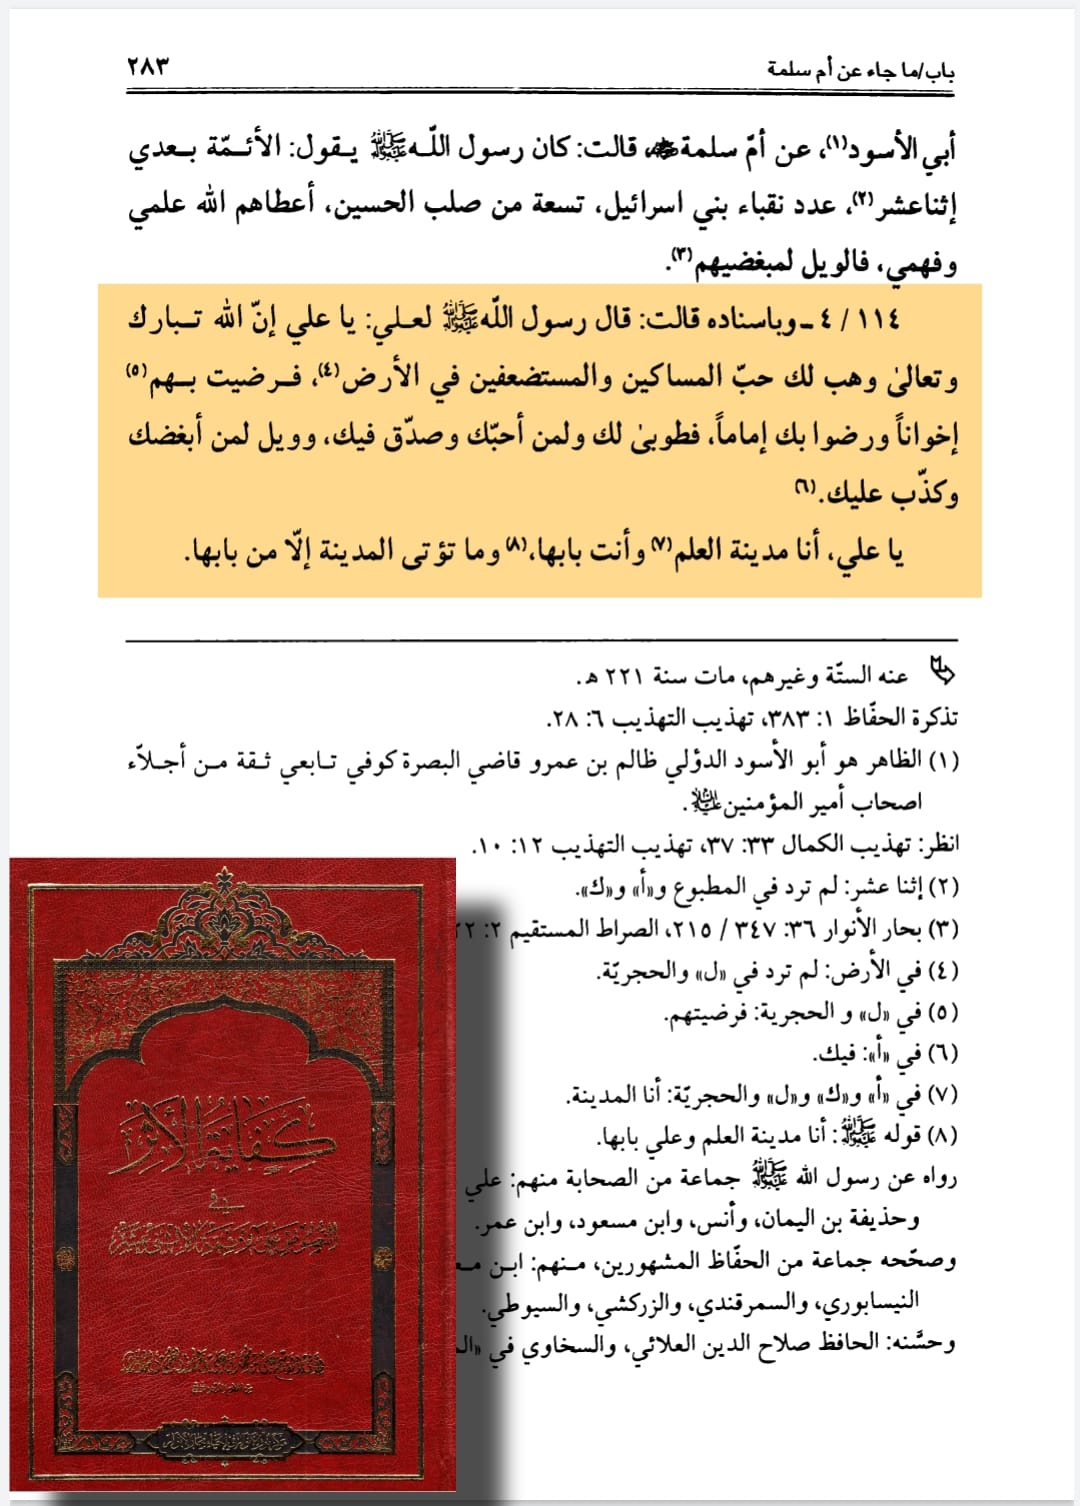 باب/ما جاء عن أم سلمة ٢٨٣
أبي الأسود(١)، عن أمّ سلمة، قالت: كان رسول اللّه ﷺ يقول: الأئمّة بعدي
إثناعشر(٢)، عدد نقباء بني اسرائيل، تسعة من صلب الحسين، أعطاهم الله علمي
وفهمي، فالويل لمبغضيهم(٣).
١١٤ / ٤ ـ وباسناده قالت: قال رسول اللّه ﷺ لعلي: يا علي إنّ الله تبارك
وتعالىٰ وهب لك حبّ المساكين والمستضعفين في الأرض(٤)، فرضيت بهم(٥)
إخواناً ورضوا بك إماماً، فطوبىٰ لك ولمن أحبّك وصدّق فيك، وويل لمن أبغضك
وكذّب عليك.(٦)
يا علي، أنا مدينة العلم(٧) وأنت بابها،(٨) وما تؤتى المدينة إلّا من بابها.
عنه الستّة وغيرهم، مات سنة ٢٢١ هـ.
تذكرة الحفّاظ ١: ٣٨٣، تهذيب التهذيب ٦: ٢٨.
(١) الظاهر هو أبو الأسود الدؤلي ظالم بن عمرو قاضي البصرة كوفي تابعي ثقة من أجلاّء
اصحاب أمير المؤمنين عليه السلام.
انظر: تهذيب الكمال ٣٣: ٣٧، تهذيب التهذيب ١٢: ١٠.
(٢) إثنا عشر: لم ترد في المطبوع و«أ» و«ك».
(٣) بحار الأنوار ٣٦: ٣٤٧ / ٢١٥، الصراط المستقيم ٢:
(٤) في الأرض: لم ترد في «ل» والحجريّة.
(٥) في «ل» و الحجرية: فرضيتهم.
(٦) في «أ»: فيك.
(٧) في «أ» و«ك» و«ل» والحجريّة: أنا المدينة.
(٨) قوله ﷺ: أنا مدينة العلم وعلي بابها.
رواه عن رسول الله ﷺ جماعة من الصحابة منهم: علي
وحذيفة بن اليمان، وأنس، وابن مسعود، وابن عمر.
وصحّحه جماعة من الحفّاظ المشهورين، منهم: ابن
النيسابوري، والسمرقندي، والزركشي، والسيوطي.
وحسَّنه: الحافظ صلاح الدين العلائي، والسخاوي في
كفاية الأثر
في